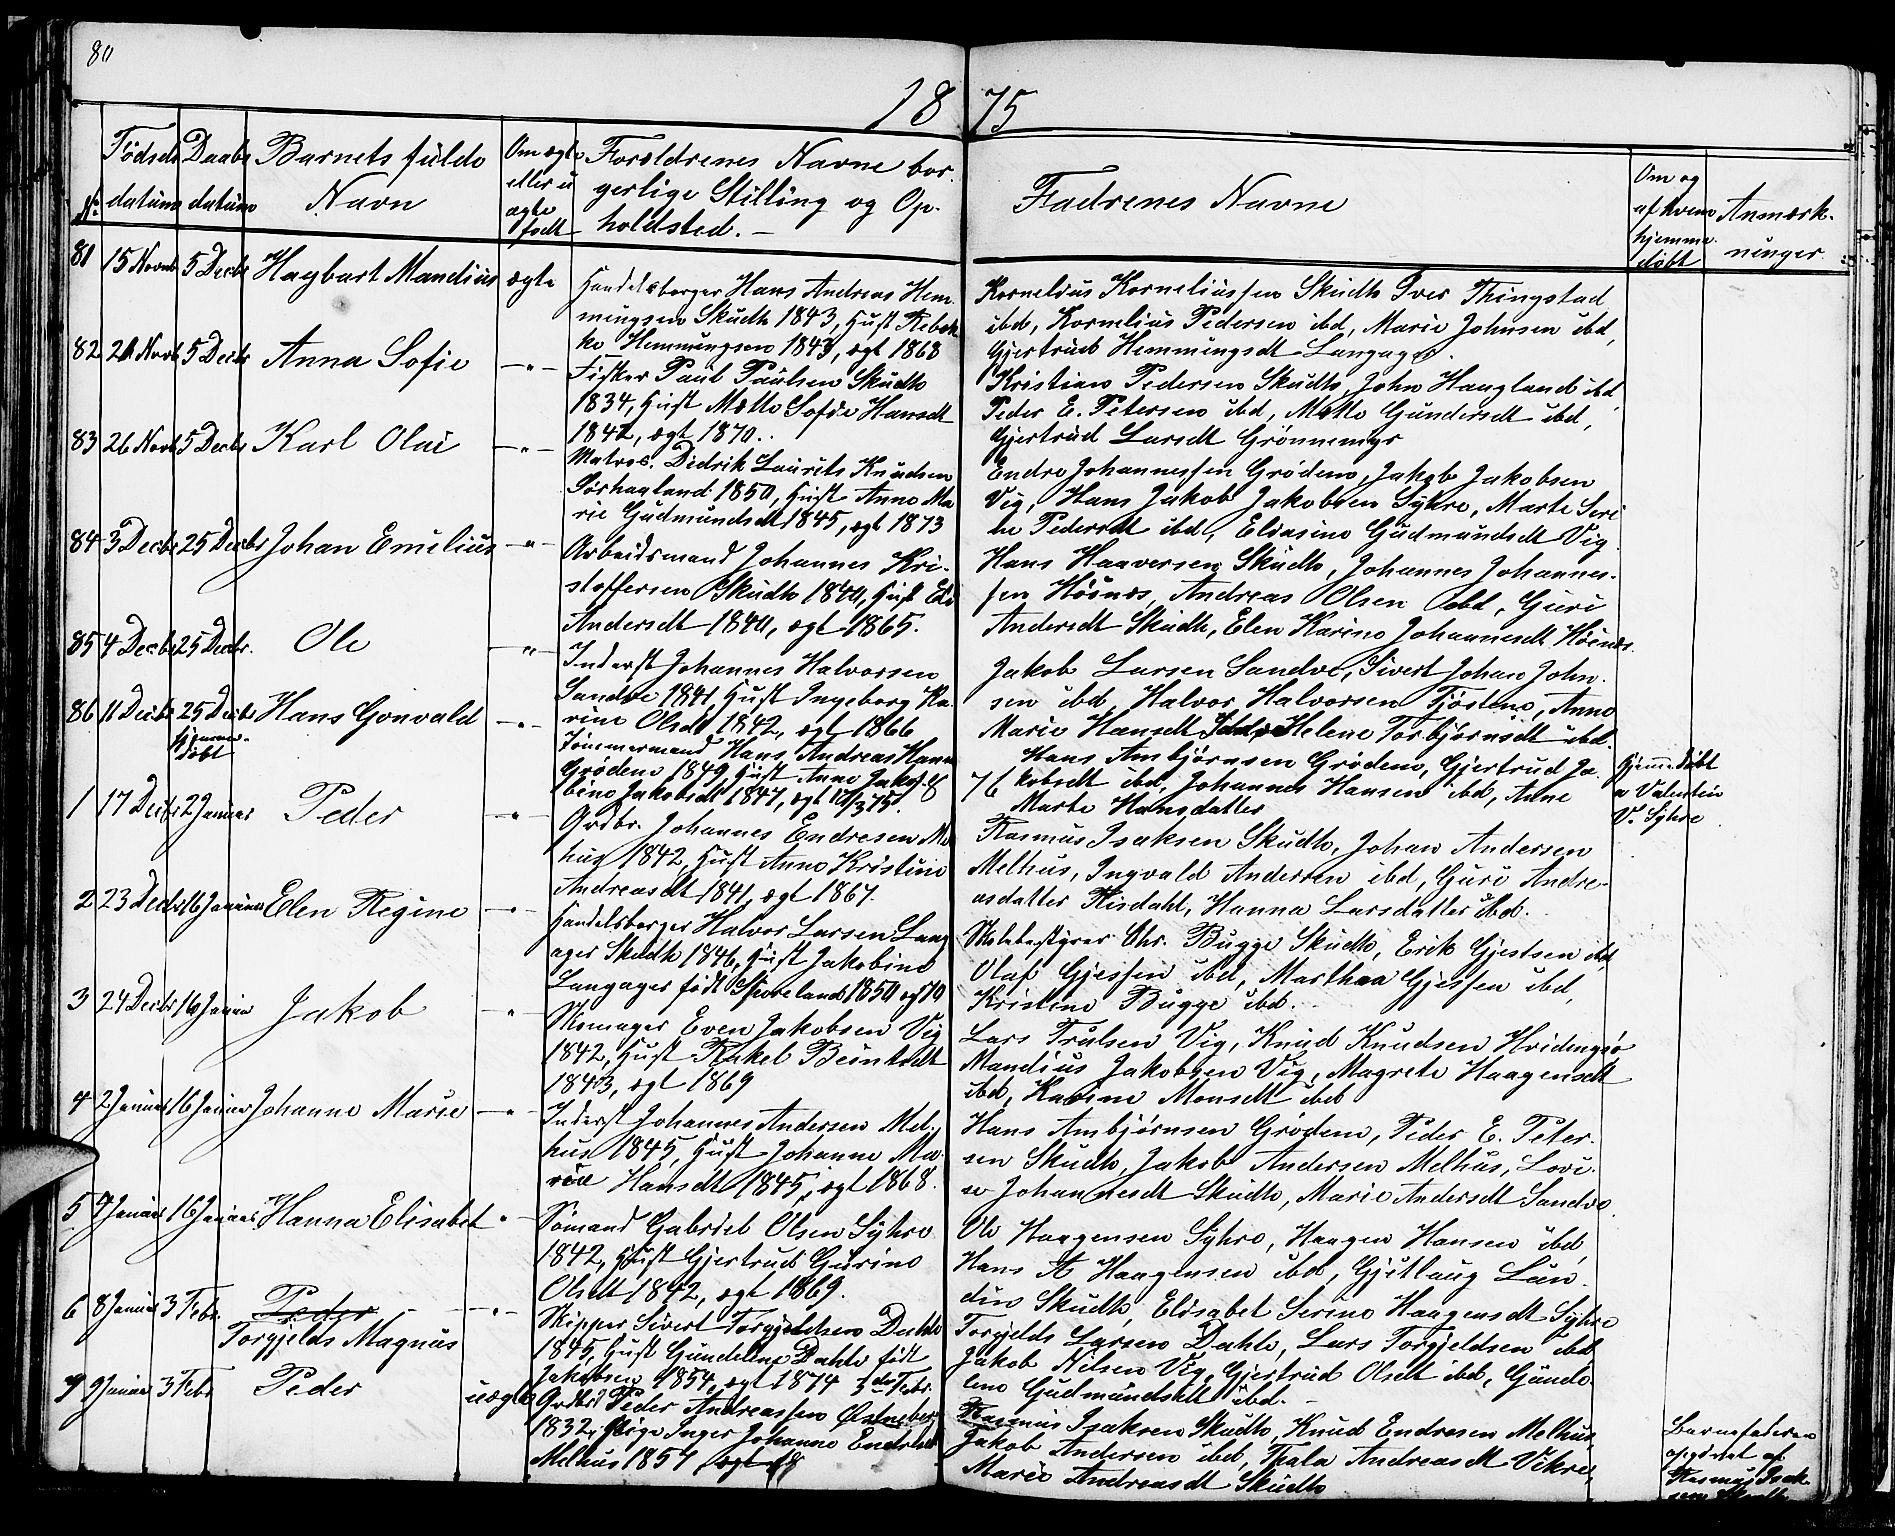 80
18 75
No
Fødsels datum
Daabs datum
Barnets fulde Navn
Om ægte eller uægte født
Forældrenes Navne bor-
gerlige Stilling og Op-
holdsted. —
Faddrenes Navne
Om og af hvem hjemmedøbt
Anmærk-
ninger
81 15 Novb 5 Decbr Hagbart Mandius ægte
Handelsborger Hans Andreas Hem-
mingsen Skudh 1843, Hust Rebek-
ke Hemmingsen 1843, ægt 1868
Kornelius Korneliussen Skudh Iver Thingstad
ibd, Kornelius Pedersen ibd, Marie Johnsen ibd,
Gjertrud Hemmingsdt Langager.
82 21 Novb 5 Decbr Anna Sofie —"—
Fisker Paul Paulsen Skudh
1834, Hust Mætte Sofie Hansdt
1842, ægt 1870.
Kristian Pedersen Skudh, John Haugland ibd,
Peder E. Petersen ibd, Mætte Gundersdt ibd,
Gjertrud Larsdt Grønnemyr
83 26 Novb 5 Decbr Karl Olai —"—
Matros. Didrik Laurits Knudsen
Sørhagland 1850, Hust Anne Ma
rie Gudmundsdt 1845, ægt 1873
Endre Johannessen Grødem, Jakob Jakobsen
Vig, Hans Jakob Jakobsen Syhre, Marte Seri
ne Pedersdt ibd, Elisasine Gudmundsdt Vig
84 3 Decbr 25 Decbr Johan Emilius —"—
Arbeidsmand Johannes Kri-
stoffersen Skudh 1840, Hust Eli
Andersdt 1840, ægt 1865.
Hans Haaversen Skudh, Johannes Johannes-
sen Høinæs, Andreas Olsen ibd, Guri
Andersdt Skudh, Elen Karine Johannesdt Høinæs
85 4 Decbr 25 Decbr. Ole —"—
Inderst Johannes Halvorsen
Sandve 1841, Hust Ingeborg Ka-
rine Olsdt 1842, ægt 1866
Jakob Larsen Sandve, Sivert Johan John-
sen ibd Halvor Halvorsen Tjøstem, Anne
Marie Hansdt Helene Torbjørnsdt ibd.
86 11 Decbr 25 Decbr Hans Gonvald —"—
hjemme-
døbt
Tømmermand Hans Andreas Hans
Grødem 1849, Hust Anne Jako-
bine Jakobsdt 1847, ægt 10/3 75.
Hans Ambjørnsen Grødem, Gjertrud Ja-
kobsdt ibd, Johannes Hansen ibd, Anne
Marte Hansdatter
Hjemmedøbt
a Valentin
V. Syhre
76
1 17 Decbr 2 Januar Peder —"—
Grdbr. Johannes Endresen Me
hus 1842, Hust Anne Kristine
Andreasdt 1841, ægt 1867.
Rasmus Isaksen Skudh, Johan Andersen
Melhus, Ingvald Andersen ibd, Guri Andre-
asdatter Risdahl, Hanna Larsdatter ibd.
2 23 Decbr 16 Januar Elen Regine —"—
Handelsborger Halvor Larsen Lang
ager Skudh 1846, Hust Jakobine
Langager født Høreland 1850 ægt 70
Skolebestyrer Chr. Bugge Skudh, Erik Gjestsen ibd,
Olaf Gjessen ibd, Marthea Gjessen ibd,
Kristine Bugge ibd.
3 24 Decbr 16 Januar Jakob "
Skomager Even Jakobsen Vig
1842, Hust Rakel Beintsdt
1843, ægt 1869
Lars Trulsen Vig, Knud Knudsen Hvidingsø
Mandius Jakobsen Vig, Magrete Haagensdt
ibd, Karine Monsdt ibd
4 2 Januar 16 Januar Johanne Marie —"—
Inderst Johannes Andersen Mel-
hus 1845, Hust Johanne Ma-
rie Hansdt 1845, ægt 1868.
Hans Ambjørnsen Grødem, Peder E. Peter-
sen Skudh, Jakob Andersen Melhus, Lovi-
se Johannesdt Skudh, Marie Andersdt Sandve.
5 7 Januar 16 Januar Hanna Elisabet "—
Sømand Gabriel Olsen Syhre
1842, Hust Gjertrud Gurine
Olsdt 1842, ægt 1869.
Ole Haagensen Syhre, Haagen Hansen ibd,
Hans A Haagensen ibd, Gjitlaug Lun-
din Skudh, Elisabet Serine Haagensdt Syhre
6 8 Januar 3 Febr. Peder —"—
Torgjelds Magnus
Skipper Sivert Torgjeldsen Dahle
1845, Hust Gundeline Dahle født
Jakobsen 1854, ægt 1874
Torgjelds Larsen Dahle, Lars Torgjeldsen ibd
Jakob Nilsen Vig, Gjertrud Olsdt ibd, Gunde-
line Gudmundsdt ibd.
7 9 Januar 3 Febr Peder uægte
Grdbr Peder Andreassen Østnebø
1832, Pige Inger Johanne Endresdt
Melhus 1857
Rasmus Isaksen Skudh, Knud Endresen Melhus,
Jakob Andersen ibd, Thala Andreasdt Vikre,
Marie Andreasdt Skudh
Barnefaderen
opgivet af
Rasmus Isak-
sen Skudh